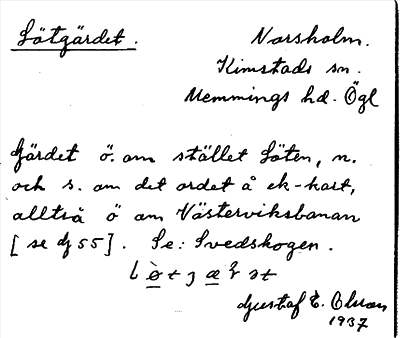 Lötgärdet. Norsholm.
Kimstads sn.
Memmings hd. Ögl
Gärdet ö. om stället Löten, n.
och s. om det ordet å ek-kart,
alltså ö om Västerviksbanan
[se dj 55]. Se: Svedskogen.
Gustaf E. Olson
1937